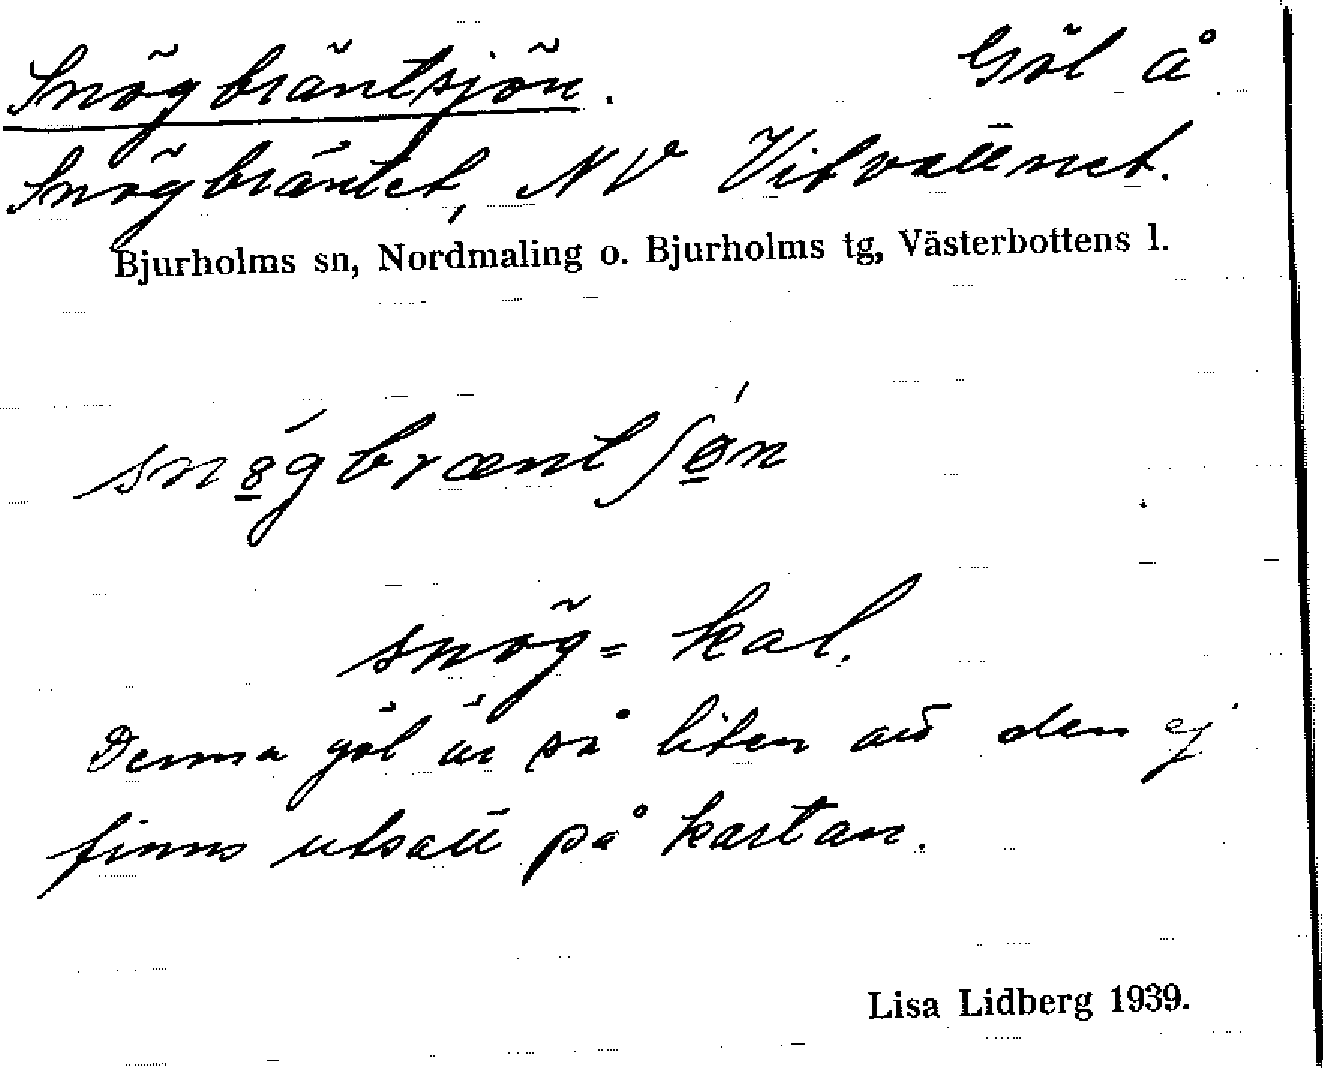 Snögbräntsjön. Göl å
Snögbräntet, NV Vitvattnet.
Bjurholms sn, Nordmaling o. Bjurholms tg, Västerbottens l.
snȣ̱́gbræntʃø̱̀n
snög = kal.
Denna göl är så liten att den ej
finns utsatt på kartan.
Lisa Lidberg 1939.